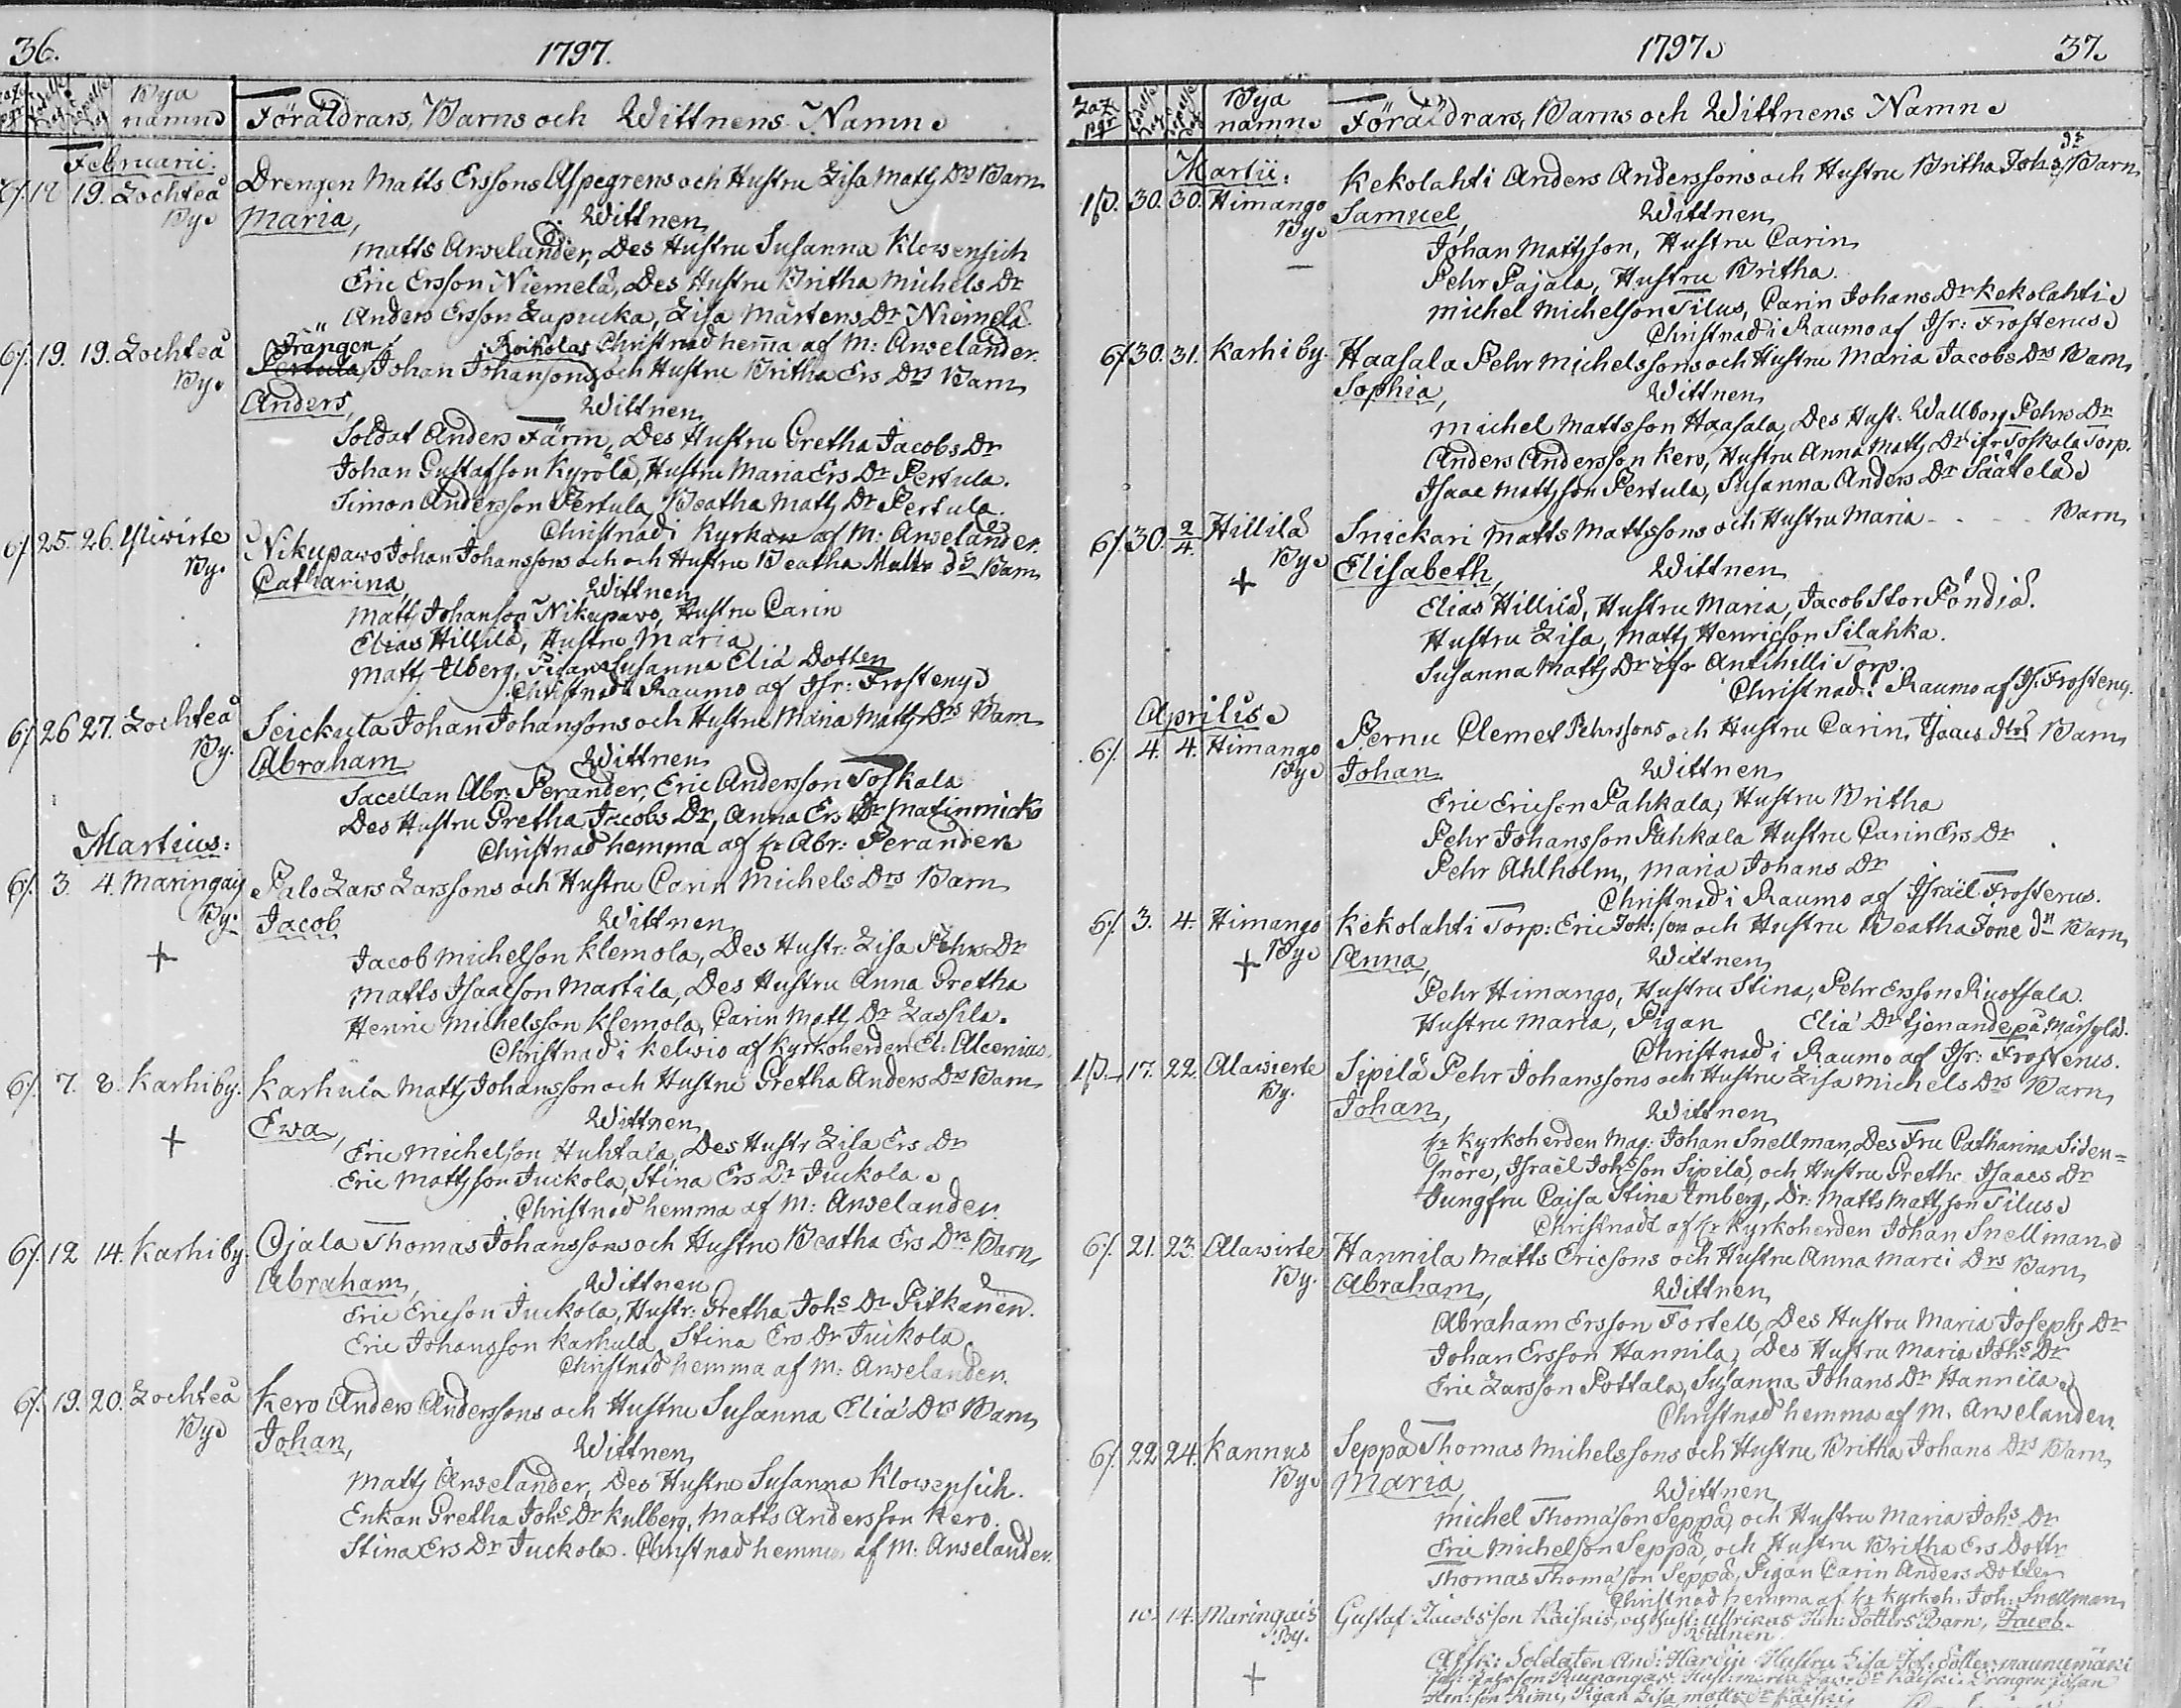 36. 1797.
Bya namn Föräldrars, Barns och Wittnens Namn
Februarii.
6/. 18 19. Lochteå By. Drengen Matts Erssons Aspegrens och Hustru Lisa Matts Drs Barn
Maria, Wittnen
Matts Arvelander, Des Hustru Susanna Klowensich
Eric Ersson Niemelä, Des Hustru Britha Michels Dr
Anders Ersson Lapucka, Lisa Mårtens Dr Niemelä
Christnad hemma af M: Arvelander.
6/. 19. 19. Lochteå By. Drängen Roikolas Johan Johansons och Hustru Britha Ers Drs Barn
Anders, Wittnen
Soldat Anders Färm, Des Hustru Gretha Jacobs Dr
Johan Gustafson Kyrölä, Hustru Maria Ers Dr Pertula.
Simon Andersson Pertula, Beatha Matts Dr Pertula.
Christnad i Kyrkan af M: Arvelander.
6/. 25. 26. Yliwirte By. Nikupawo Johan Johanssons och och Hustru Beatha Matts ds Barn
Catharina, Wittnen
Matts Johanson Nikupawo, Hustru Carin
Elias Hillilä, Hustru Maria
Matts Ulberg, Pigan Susanna Elia Dotter
Christnad i Raumo af Isr: Frosterus
6/. 26 27. Lochteå By. Seickula Johan Johanssons och Hustru Maria Matts Drs Barn
Abraham Wittnen
Sacellan Abr. Perander, Eric Andersson Toskala
Des Hustru Gretha Jacobs Dr, Anna Ers Dr Matinmicko
Christnad hemma af Hr Abr: Perander
Martius:
6/. 3. 4. Maringais By. Palo Lars Larssons och Hustru Carin Michels Drs Barn
Jacob Wittnen
+ Jacob Michelson Klemola, Des Hustr: Lisa Pehrs Dr
Matts Isaacson Martila, Des Hustru Anna Gretha
Henric Michelsson Klemola, Carin Matts Dr Lassila.
Christnad i Kelwio af Kyrkoherden El: Alcenius.
6/. 7. 8. Karhi by. Karhula Matts Johansson och Hustru Gretha Anders Drs Barn
Ewa, Wittnen
+ Eric Michelson Huhtala, Des Hustr Lisa Ers Dr
Eric Mattsson Juckola, Stina Ers Dr Juckola
Christnad hemma af M: Arvelander
6/. 12 14. Karhi by. Ojala Thomas Johanssons och Hustru Beatha Ers Drs Barn
Abraham, Wittnen
Eric Ericson Juckola, Hustr: Gretha Johs Dr Pitkänen.
Eric Johansson Karhula, Stina Ers Dr Juckola
Christnad hemma af M: Arvelander.
6/. 19. 20. Lochteå By Kero Anders Anderssons och Hustru Susanna Elia Drs Barn
Johan, Wittnen
Matts Arvelander, Des Hustru Susanna Klowensich.
Enkan Gretha Johs Dr Kulberg, Matts Andersson Kero.
Stina Ers Dr Juckola. Christnad hemma af M: Arvelander.
1797. 37.
Bya namn Föräldrars, Barns och Wittnens Namn
Martii:
1/2. 30. 30. Himango By Kekolahti Anders Anderssons och Hustru Britha Johs ds Barn
Samuel, Wittnen
Johan Mattsson, Hustru Carin
Pehr Pajala, Hustru Britha.
Michel Michelson Tilus, Carin Johans Dr Kekolahti
Christnad i Raumo af Isr: Frosterus
6/ 30. 31. Karhi by. Haasala Pehr Michelssons och Hustru Maria Jacobs Drs Barn
Sophia, Wittnen
Michel Mattsson Haasala, Des Hust: Wallborg Pehrs Dr
Anders Andersson Kero, Hustru Anna Matts Dr ifr Toskala Torp.
Isaac Mattsson Pertula, Susanna Anders Dr Säätelä
6/. 30. 2/4. Hillilä By Snickari Matts Mattssons och Hustru Maria - - - - Barn
+ Elisabeth, Wittnen
Elias Hillilä, Hustru Maria, Jacob Stor Pöndiä.
Hustru Lisa, Matts Henricson Silahka.
Susanna Matts Dr ifr Antihilli Torp.
Christnad i Raumo af Is. Frosterus.
Aprilis
6/. 4. 4. Himango By Pernu Clemet Pehrssons och Hustru Carin Isaacs Drs Barn
Johan Wittnen
Eric Ericson Pahkala, Hustru Britha
Pehr Johansson Pahkala Hustru Carin Ers Dr
Pehr Ahlholm, Maria Johans Dr
Christnad i Raumo af Israël Frosterus.
6/. 3. 4. Himango By Kekolahti Torp: Eric Joh: son och Hustru Beatha Jone dr Barn
+ Anna, Wittnen
Pehr Himango, Hustru Stina, Pehr Ersson Ruotsala.
Hustru Maria, Pigan Elia Dr tjenande på Märsylä.
Christnad i Raumo af Isr: Frosterus.
1/2. 17. 22 Alawierte By. Sipilä Pehr Johanssons och Hustru Lisa Michels Drs Barn
Johan, Wittnen
Hr Kyrkoherden Mag: Johan Snellman, Des Fru Catharina Siden=
snöre, Israël Johsson Sipilä, och Hustru Gretha Isaacs Dr
Jungfru Caisa Stina Emberg, Dr: Matts Mattsson Tilus
Christnadt af Hr Kyrkoherden Johan Snellman
6/. 21. 23. Alawirte By. Hannila Matts Ericsons och Hustru Anna Marci Drs Barn
Abraham, Wittnen
Abraham Ersson Fortell, Des Hustru Maria Josephs Dr
Johan Ersson Hannila, Des Hustru Maria Johs Dr
Eric Larsson Pottala, Susanna Johans Dr Hannila
Christnad hemma af M. Arvelander.
6/. 22 24. Kannus By Seppä Thomas Michelssons och Hustru Britha Johans Drs Barn
Maria, Wittnen
Michel Thomason Seppä, och Hustru Maria Johs Dr
Eric Michelson Seppä, och Hustru Britha Ers Dottr
Thomas Thomason Seppä, Pigan Carin Anders Dotter
Christnad hemma af Hr Kyrkoh. Joh: Snellman
10. 14. Maringais By. Gustaf Jacobsson Kaiskis, och Hust: Ullrikas Hin: Dotters Barn, Jacob.
Wittnen
+ Afsk: Soldaten And: Hardin Hustru Lisa Joh: Dotter Maunumäki